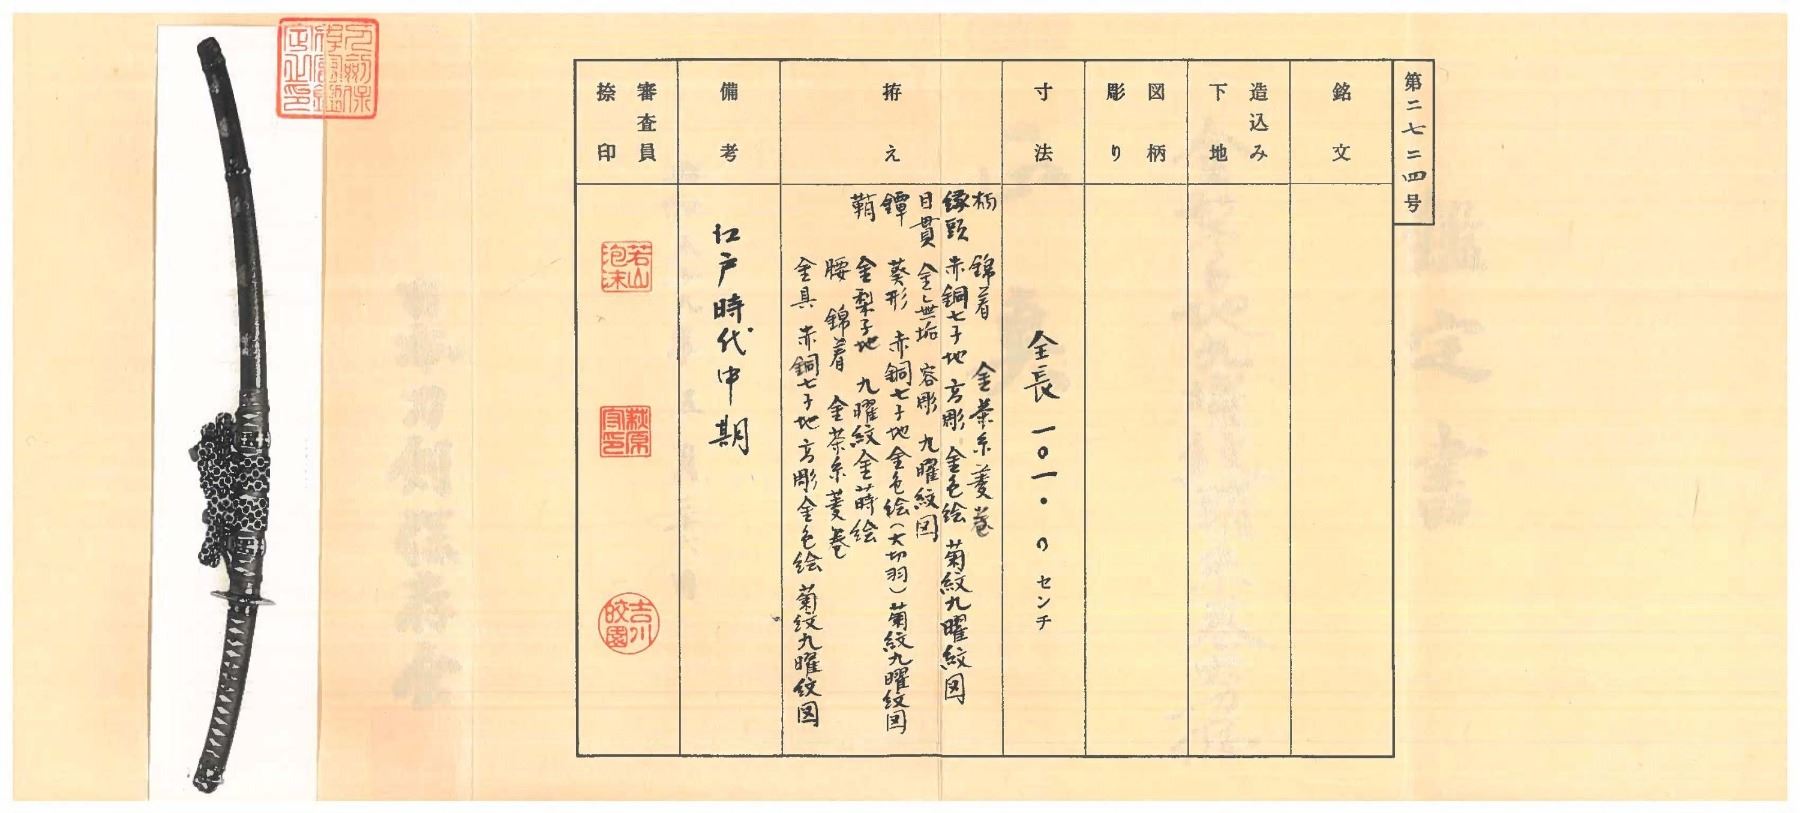 第二七二四号
銘文
造込み
下地
図柄
彫り
寸法
全長 一〇一・〇センチ
拵え
柄 錦着 金茶糸菱巻
縁頭 赤銅七子地 高彫 金色絵 菊紋九曜紋図
目貫 金無垢 容彫 九曜紋図
鐔 葵形 赤銅七子地金色絵(大切羽)菊紋九曜紋図
鞘 金梨子地 九曜紋金蒔絵
腰 錦着 金茶糸菱巻
金具 赤銅七子地高彫金色絵 菊紋九曜紋図
備考
江戸時代中期
審査員
捺印
若山
泡沫
萩原
守印
吉川
皎園
鑑定書